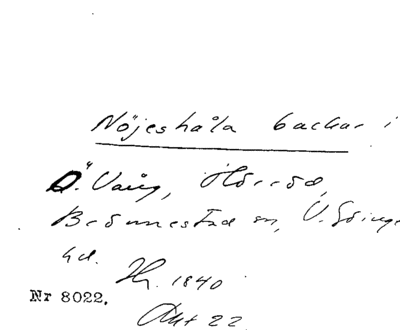 Nöjeshåla backar i
Ö. Vång, Hörröd,
Brönnestad sn, V. Göinge
hd.
Hr. 1840
Nr 8022.
Akt 22